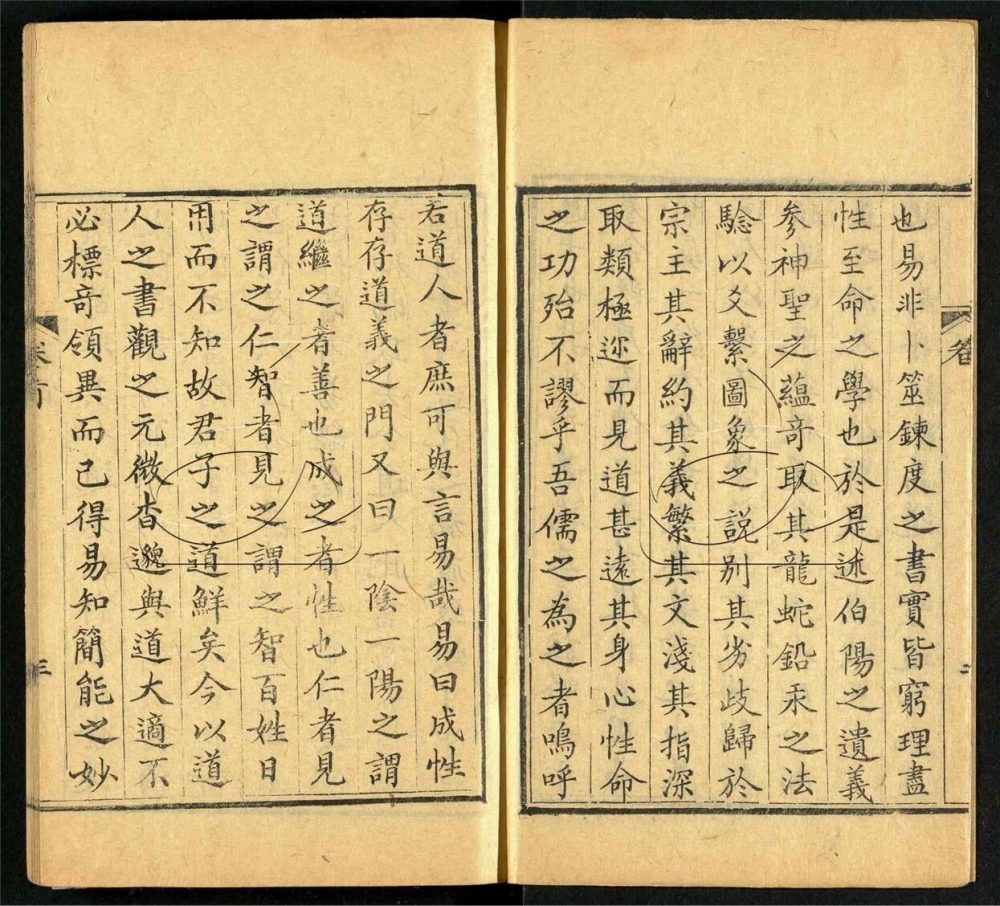 也易非卜筮鍊度之書實皆窮理盡
性至命之學也於是述伯陽之遺義
參神聖之蘊竒取其龍蛇鉛汞之法
驗以爻繫圖象之說別其旁歧歸於
宗主其辭約其義繁其文淺其指深
取類極迩而見道甚遠其身心性命
之功殆不謬乎吾儒之為之者嗚呼
若道人者庶可與言易哉易曰成性
存存道義之門又曰一陰一陽之謂
道繼之者善也成之者性也仁者見
之謂之仁智者見之謂之智百姓日
用而不知故君子之道鮮矣今以道
人之書觀之元微杳邈與道大適不
必標竒領異而已得易知簡能之妙
卷首
三